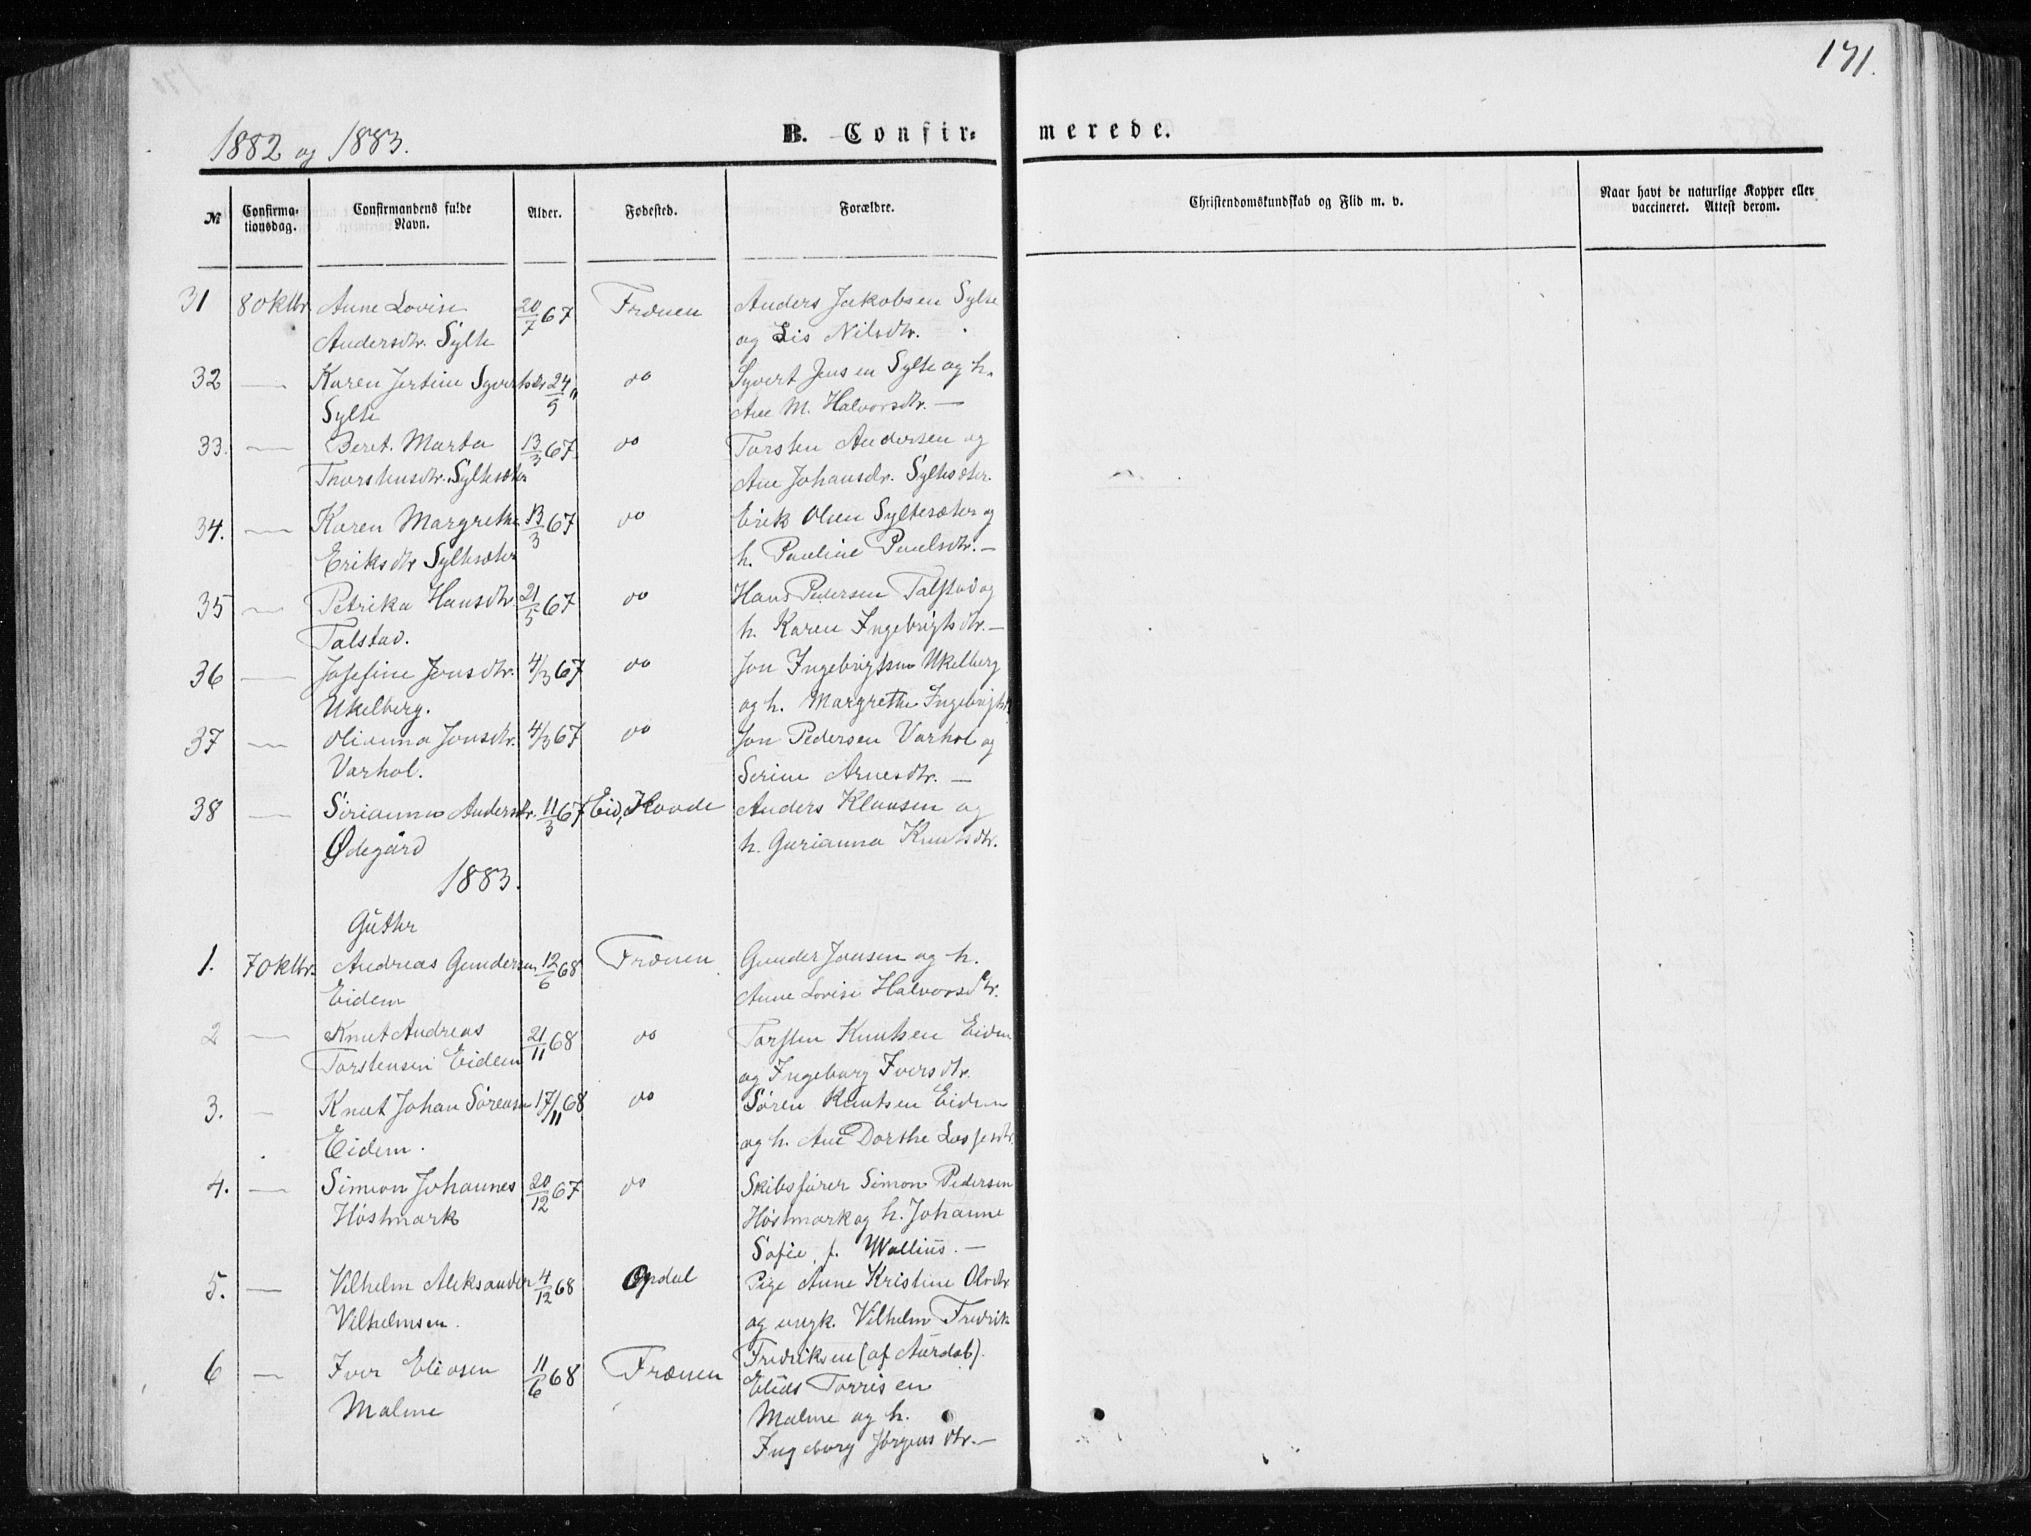 171.
1882 og 1883.
B. Confir- merede.
№
Confirma-
tionsdag.
Confirmandens fulde
Navn.
Alder.
Fødested.
Forældre.
Christendomskundskab og Flid m. v.
Naar havt de naturlige Kopper eller
vaccineret. Attest derom.
31 8 Oktbr. Anne Lovise 20/7 67 Frænen Anders Jakobsen Sylte
Andersdtr. Sylte og Lis Nilsdtr.
32 — Karen Jertine Syvertsdtr 24/9 " do Syvert Jensen Sylte og h.
Sylte Ane M. Halvorsdtr. —
33. — Beret Marta 13/3 67. do Torsten Andersen og
Thorstensdtr. Syltesæter Ane Johansdtr. Syltesæter.
34. — Karen Margrethe 13/3 67 do Erik Olsen Syltesæter og
Eriksdtr Syltesæter h. Pauline Paulsdtr. —
35 — Petrika Hansdtr. 21/5 67 do Hans Pedersen Talstad og
Talstad. h. Karen Ingebrigtsdtr. —
36 — Josefine Jonsdtr. 4/3 67 do Jon Ingebrigtsen Ukelberg
Ukelberg. og h. Margrethe Ingebrigtsd.
37 — Olianna Jonsdtr. 4/3 67 do Jon Pedersen Varhol og
Varhol. Serine Arnesdtr. —
38 — Sirianna Andersdtr. 11/3 67 Eid, Hovde Anders Klausen og
Ødegård h. Gurianna Knutsdtr.
1883.
Gutter
1. 7 Oktbr. Andreas Gundersen 12/6 68 Frænen Gunder Jonsen og h.
Eidem Anne Lovise Halvorsdtr.
2 — Knut Andreas 21/11 68 do Torsten Knutsen Eidem
Torstensen Eidem og Ingeborg Iversdtr.
3. — Knut Johan Sørensen 17/11 68 do Søren Knutsen Eidem
Eidem. og h. Ane Dorthe Lassesdtr.
4. — Simeon Johannes 20/12 67 do Skibsfører Simon Pedersen
Høstmark Høstmark og h. Johanne
Sofie f. Wallius. —
5. — Vilhelm Aleksander 4/12 68 Opdal Pige Anne Kristine Olsdtr
Vilhelmsen. og ungk. Vilhelm Fredrik
Fredriksen (af Aurdal).
6 — Iver Eliasen 11/6 68 Frænen Elias Torrisen
Malme Malme og h.
Ingeborg Jørgensdtr. —